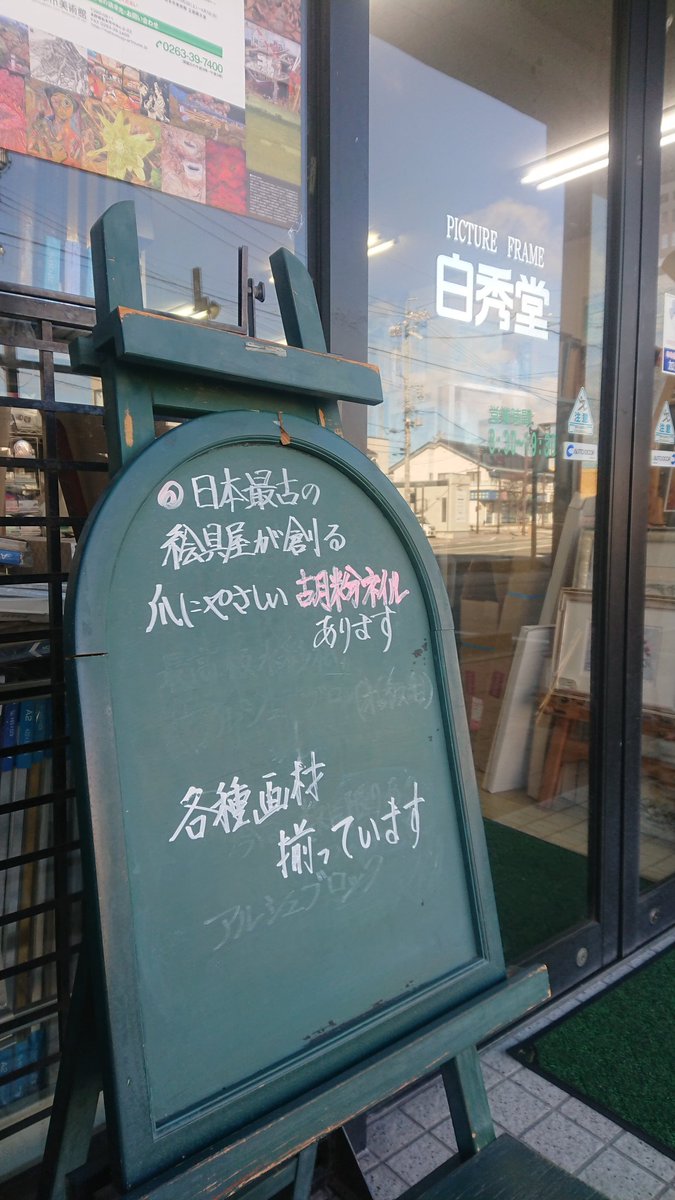 市美術館
0263-39-7400
PICTURE FRAME
白秀堂
営業時間
注意
注意
AUTO DOOR
AUTO DOOR
日本最古の
絵具屋が創る
爪にやさしい 胡粉ネイル
あります
各種画材
揃っています
アルシュブロック
A2